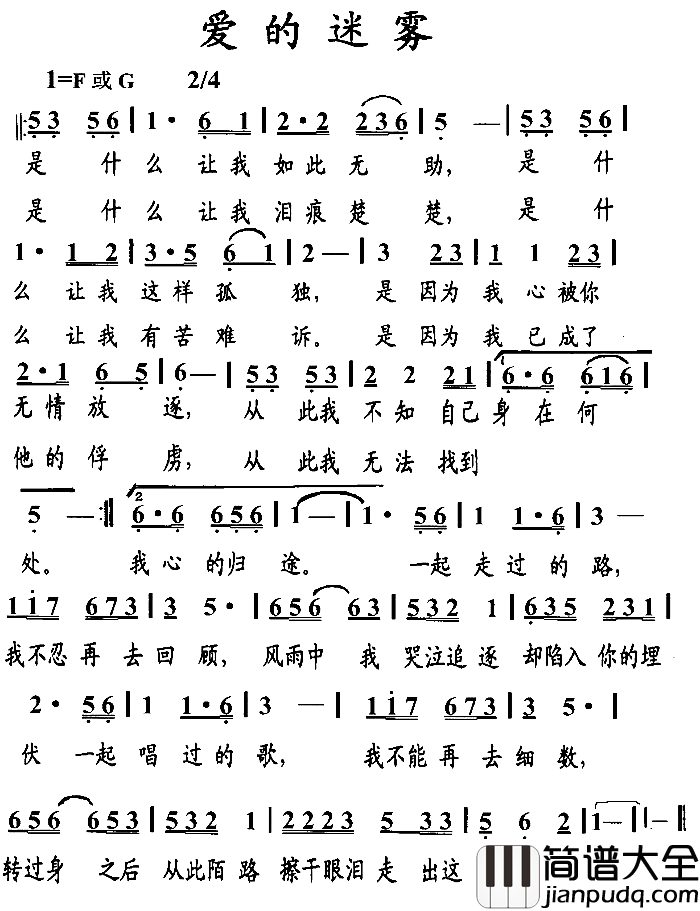 爱的迷雾
1=F 或 G 2/4
5 3 5 6 | 1· 6 1 | 2·2 2 3 6 | 5 — | 5 3 5 6 |
是 什 么 让我 如此 无 助, 是 什
是 什 么 让我 泪痕 楚 楚, 是 什
1· 1 2 | 3·5 6 1 | 2 — | 3 2 3 | 1 1 2 3 |
么 让我 这样 孤 独, 是 因为 我 心 被你
么 让我 有苦 难 诉。 是 因为 我 已 成了
2·1 6 5 | 6 — | 5 3 5 3 | 2 2 2 1 | 1 6·6 6 1 6 |
无情 放 逐, 从 此我 不 知 自己 身 在 何
他的 俘 虏, 从 此我 无 法 找到
5 — :‖ 2 6·6 6 5 6 | 1 — | 1· 5 6 | 1 1·6 | 3 —
处。 我 心 的 归 途。 一起 走 过 的 路,
1 1 7 6 7 3 | 3 5· | 6 5 6 6 3 | 5 3 2 1 | 6 3 5 2 3 1 |
我不忍 再 去 回 顾, 风雨中 我 哭泣追 逐 却陷入 你的埋
2· 5 6 | 1 1·6 | 3 — | 1 1 7 6 7 3 | 3 5· |
伏 一起 唱 过 的 歌, 我不能 再 去 细 数,
6 5 6 6 5 3 | 5 3 2 1 | 2 2 2 3 5 3 3 | 5 6 2 | 1 — | 1 — ‖
转过身 之后 从此陌 路 擦干眼泪 走 出 这
简谱大全
jianpudq.com